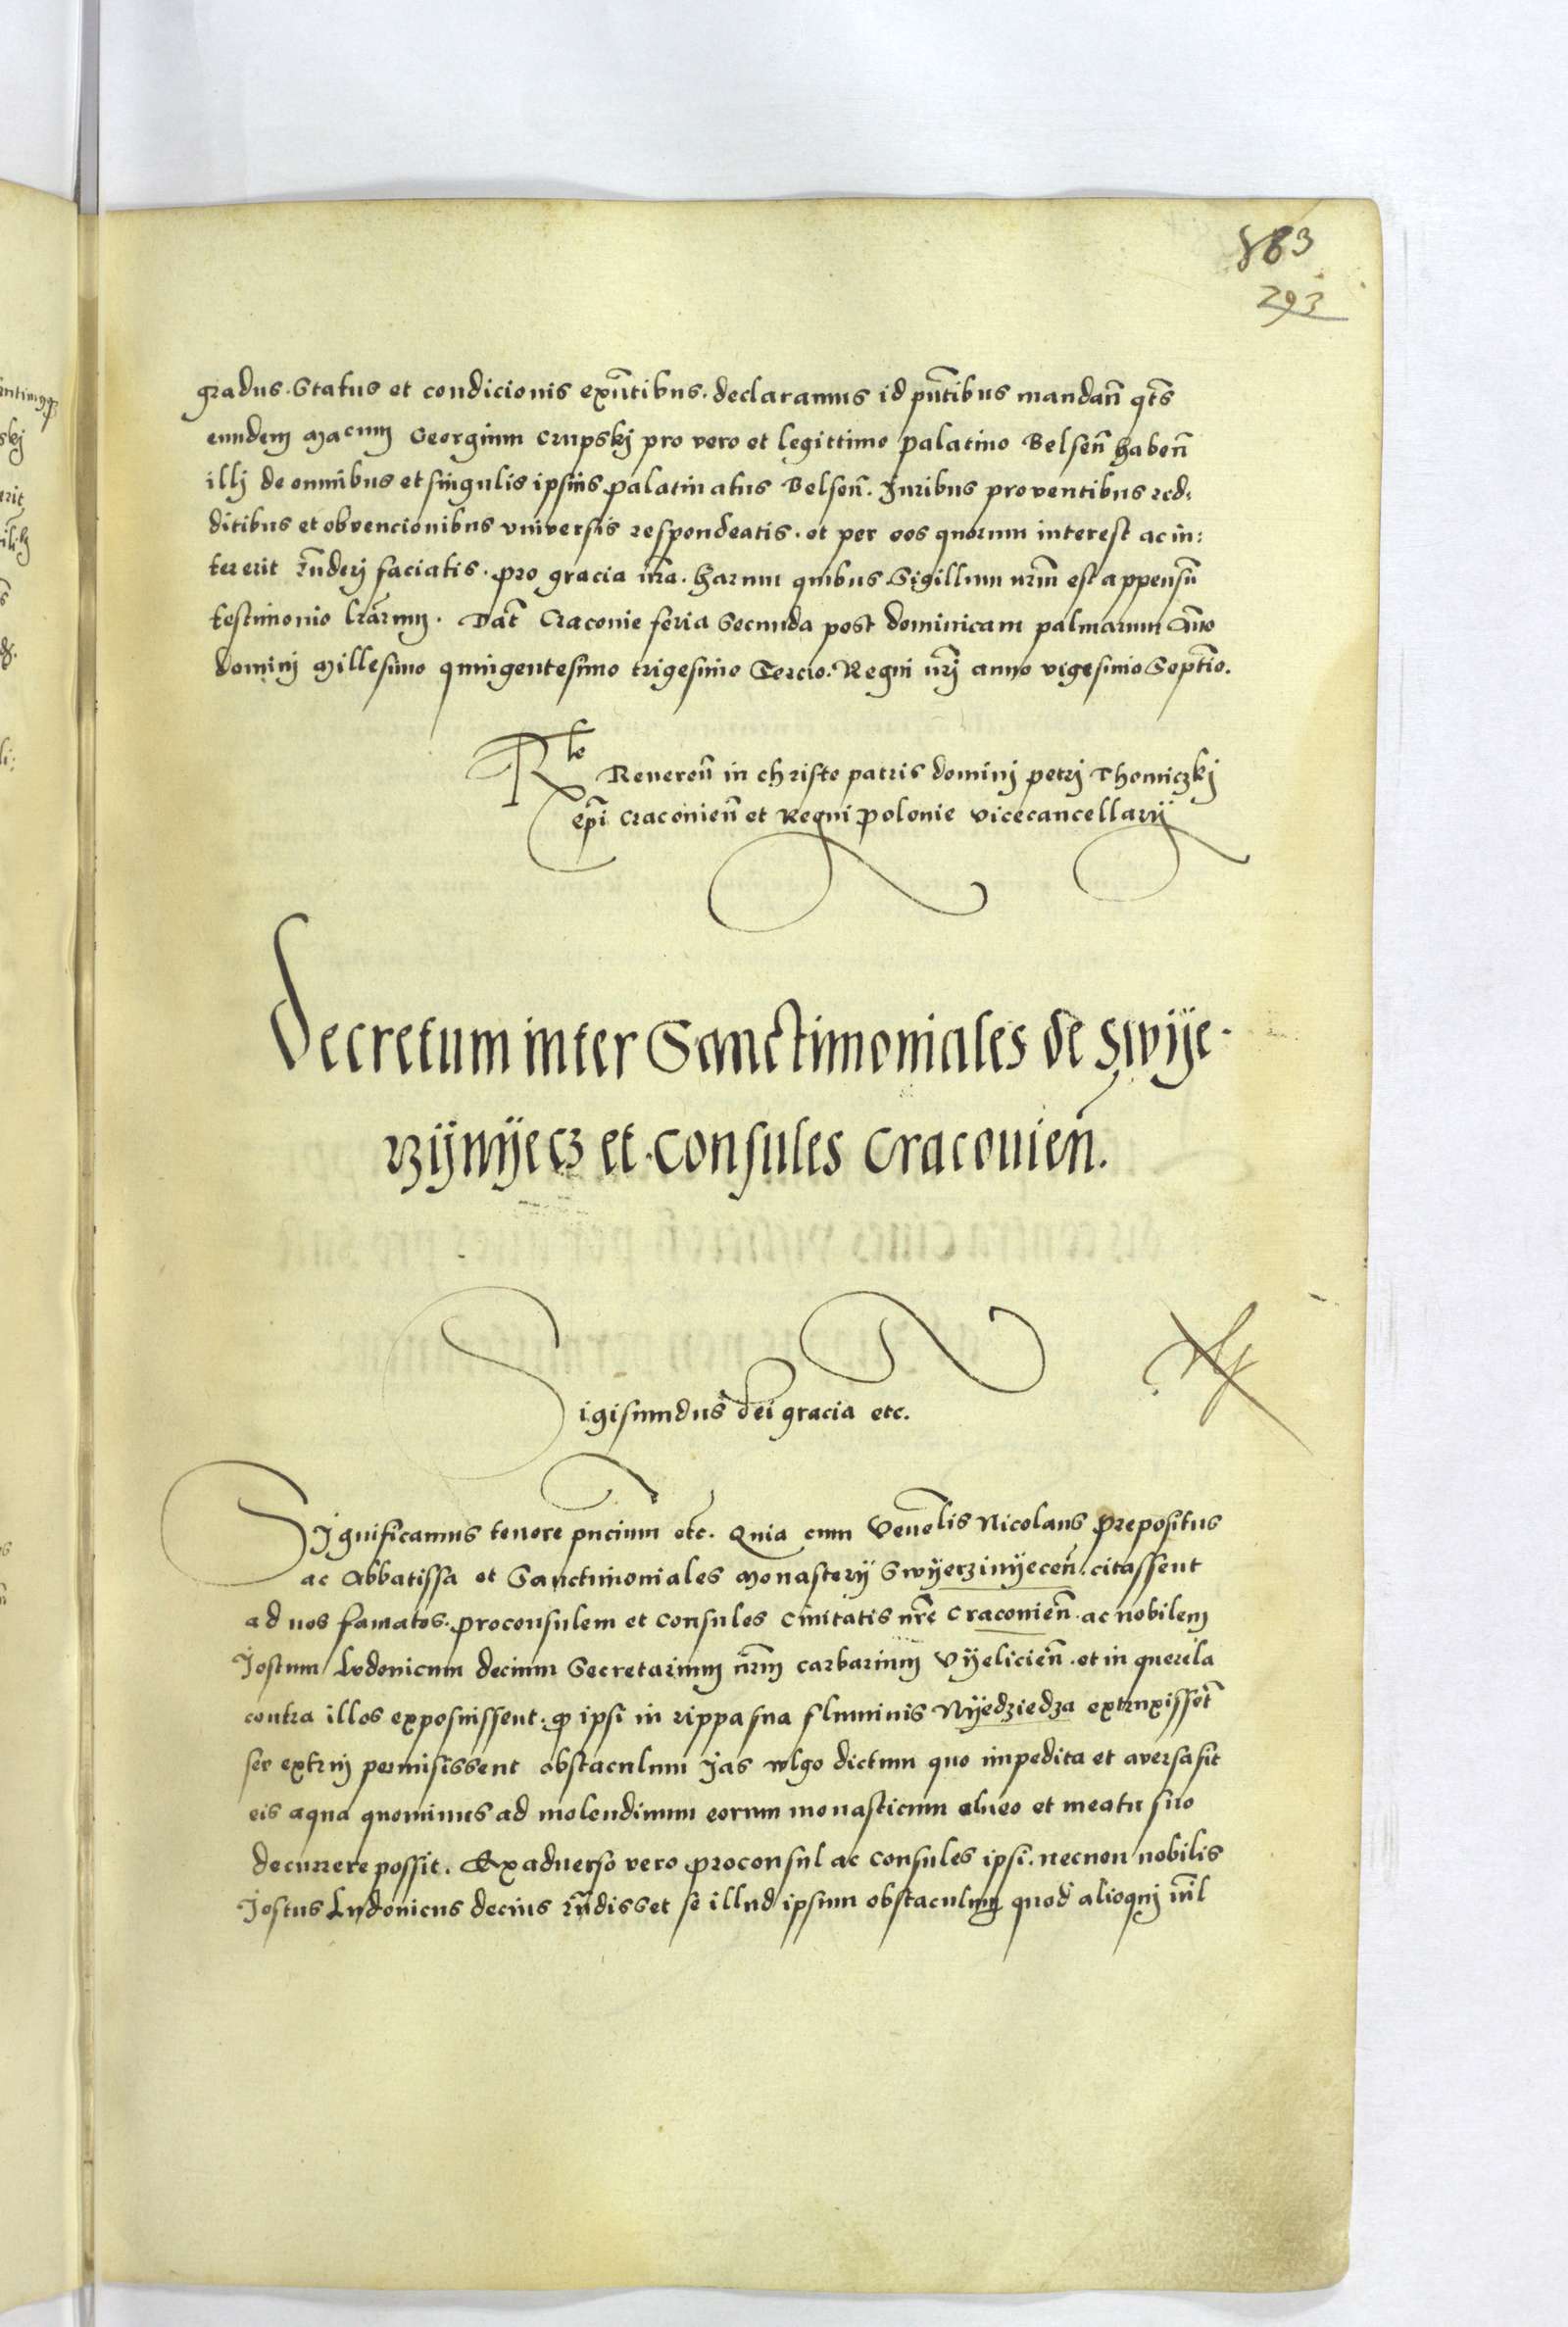 863
293
gradus. Status et condicionis exn̄tibus. declaramus id pn̄tibus mandan̄ qt̄s
eundem Macum Georgium Crupskj pro vero et legittimo palatino Belsen̄ haben̄
illj de omnibus et singulis ipsius palatinatus Belsen̄. Juribus proventibus red:
ditibus et obvencionibus vniversis respondeatis. et per eos quorum interest ac in:
tererit rn̄derj faciatis. pro gracia nr̄a. harum quibus Sigillum nrm̄ est appensū
testimonio lrārum. Dat̄ Craconie feria Secunda post dominicam palmarum An̄o
dominj Millesimo quingentesimo trigesimo Tercio. Regni nrj̄ anno vigesimo Septīo.
Rlo
Reueren̄ in christo patris dominj petrj Thomiczkj
ep̄i Craconien̄ et Regni polonie vicecancellarij
Decretum inter Sanctimoniales de Swÿe-
rzÿnÿecz et Consules Cracouien̄.
Sigismundus dei gracia etc.
Significamus tenore pn̄cium etc. Quia cum Ven̄elis Nicolaus prepositus
ac Abbatissa et Sanctimoniales Monasterij Swÿerzinÿecen̄ citassent
ad nos famatos. proconsulem et consules Ciuitatis nrē Craconien̄. ac nobilem
Jostum Lodouicum decium Secretarium nrm̄ carbarium Vÿelicien̄. et in querela
contra illos exposuissent. ꝙ ipsi in rippa sua fluminis Nÿedziedza extruxissēt
seu extruj permisissent obstaculum Jas wlgo dictum quo impedita et aversa sit
eis aqua quominus ad molendinum eorum monasticum alueo et meatu suo
decurrere possit. Ex aduerso vero proconsul ac consules ipsi. necnon nobilis
Jostus Ludouicus decius rn̄disset se illud ipsum obstaculum quod alioqnj nīl